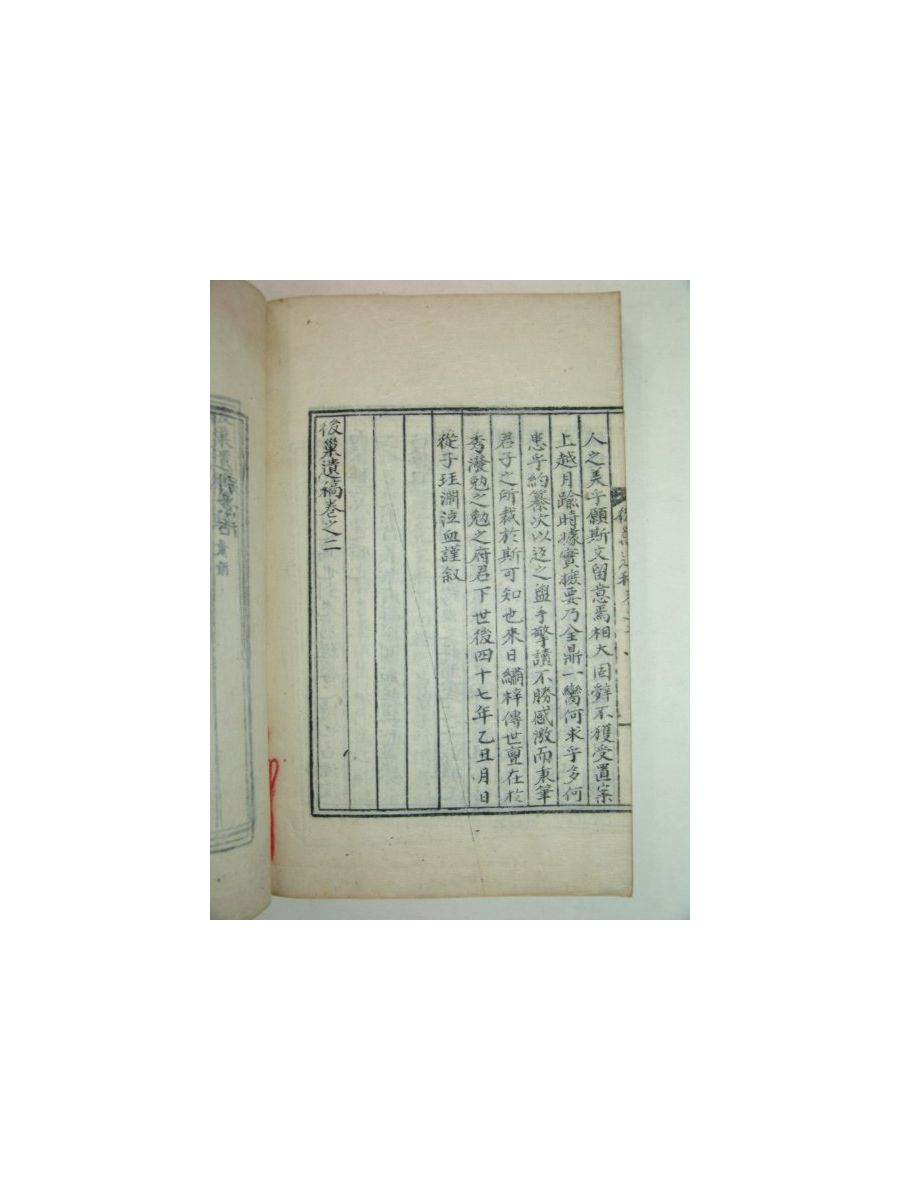 人之美乎願斯文留意焉相大固辭不獲受置案
上越月踰時據實撮要乃全鼎一臠何求乎多何
患乎約纂次以送之盥手擎讀不勝感激而秉筆
君子之所裁於斯可知也來日繡梓傳世亶在於
秀潑勉之勉之府君下世後四十七年乙丑月日
從子珏淵泣血謹叙
後巢遺稿卷之二